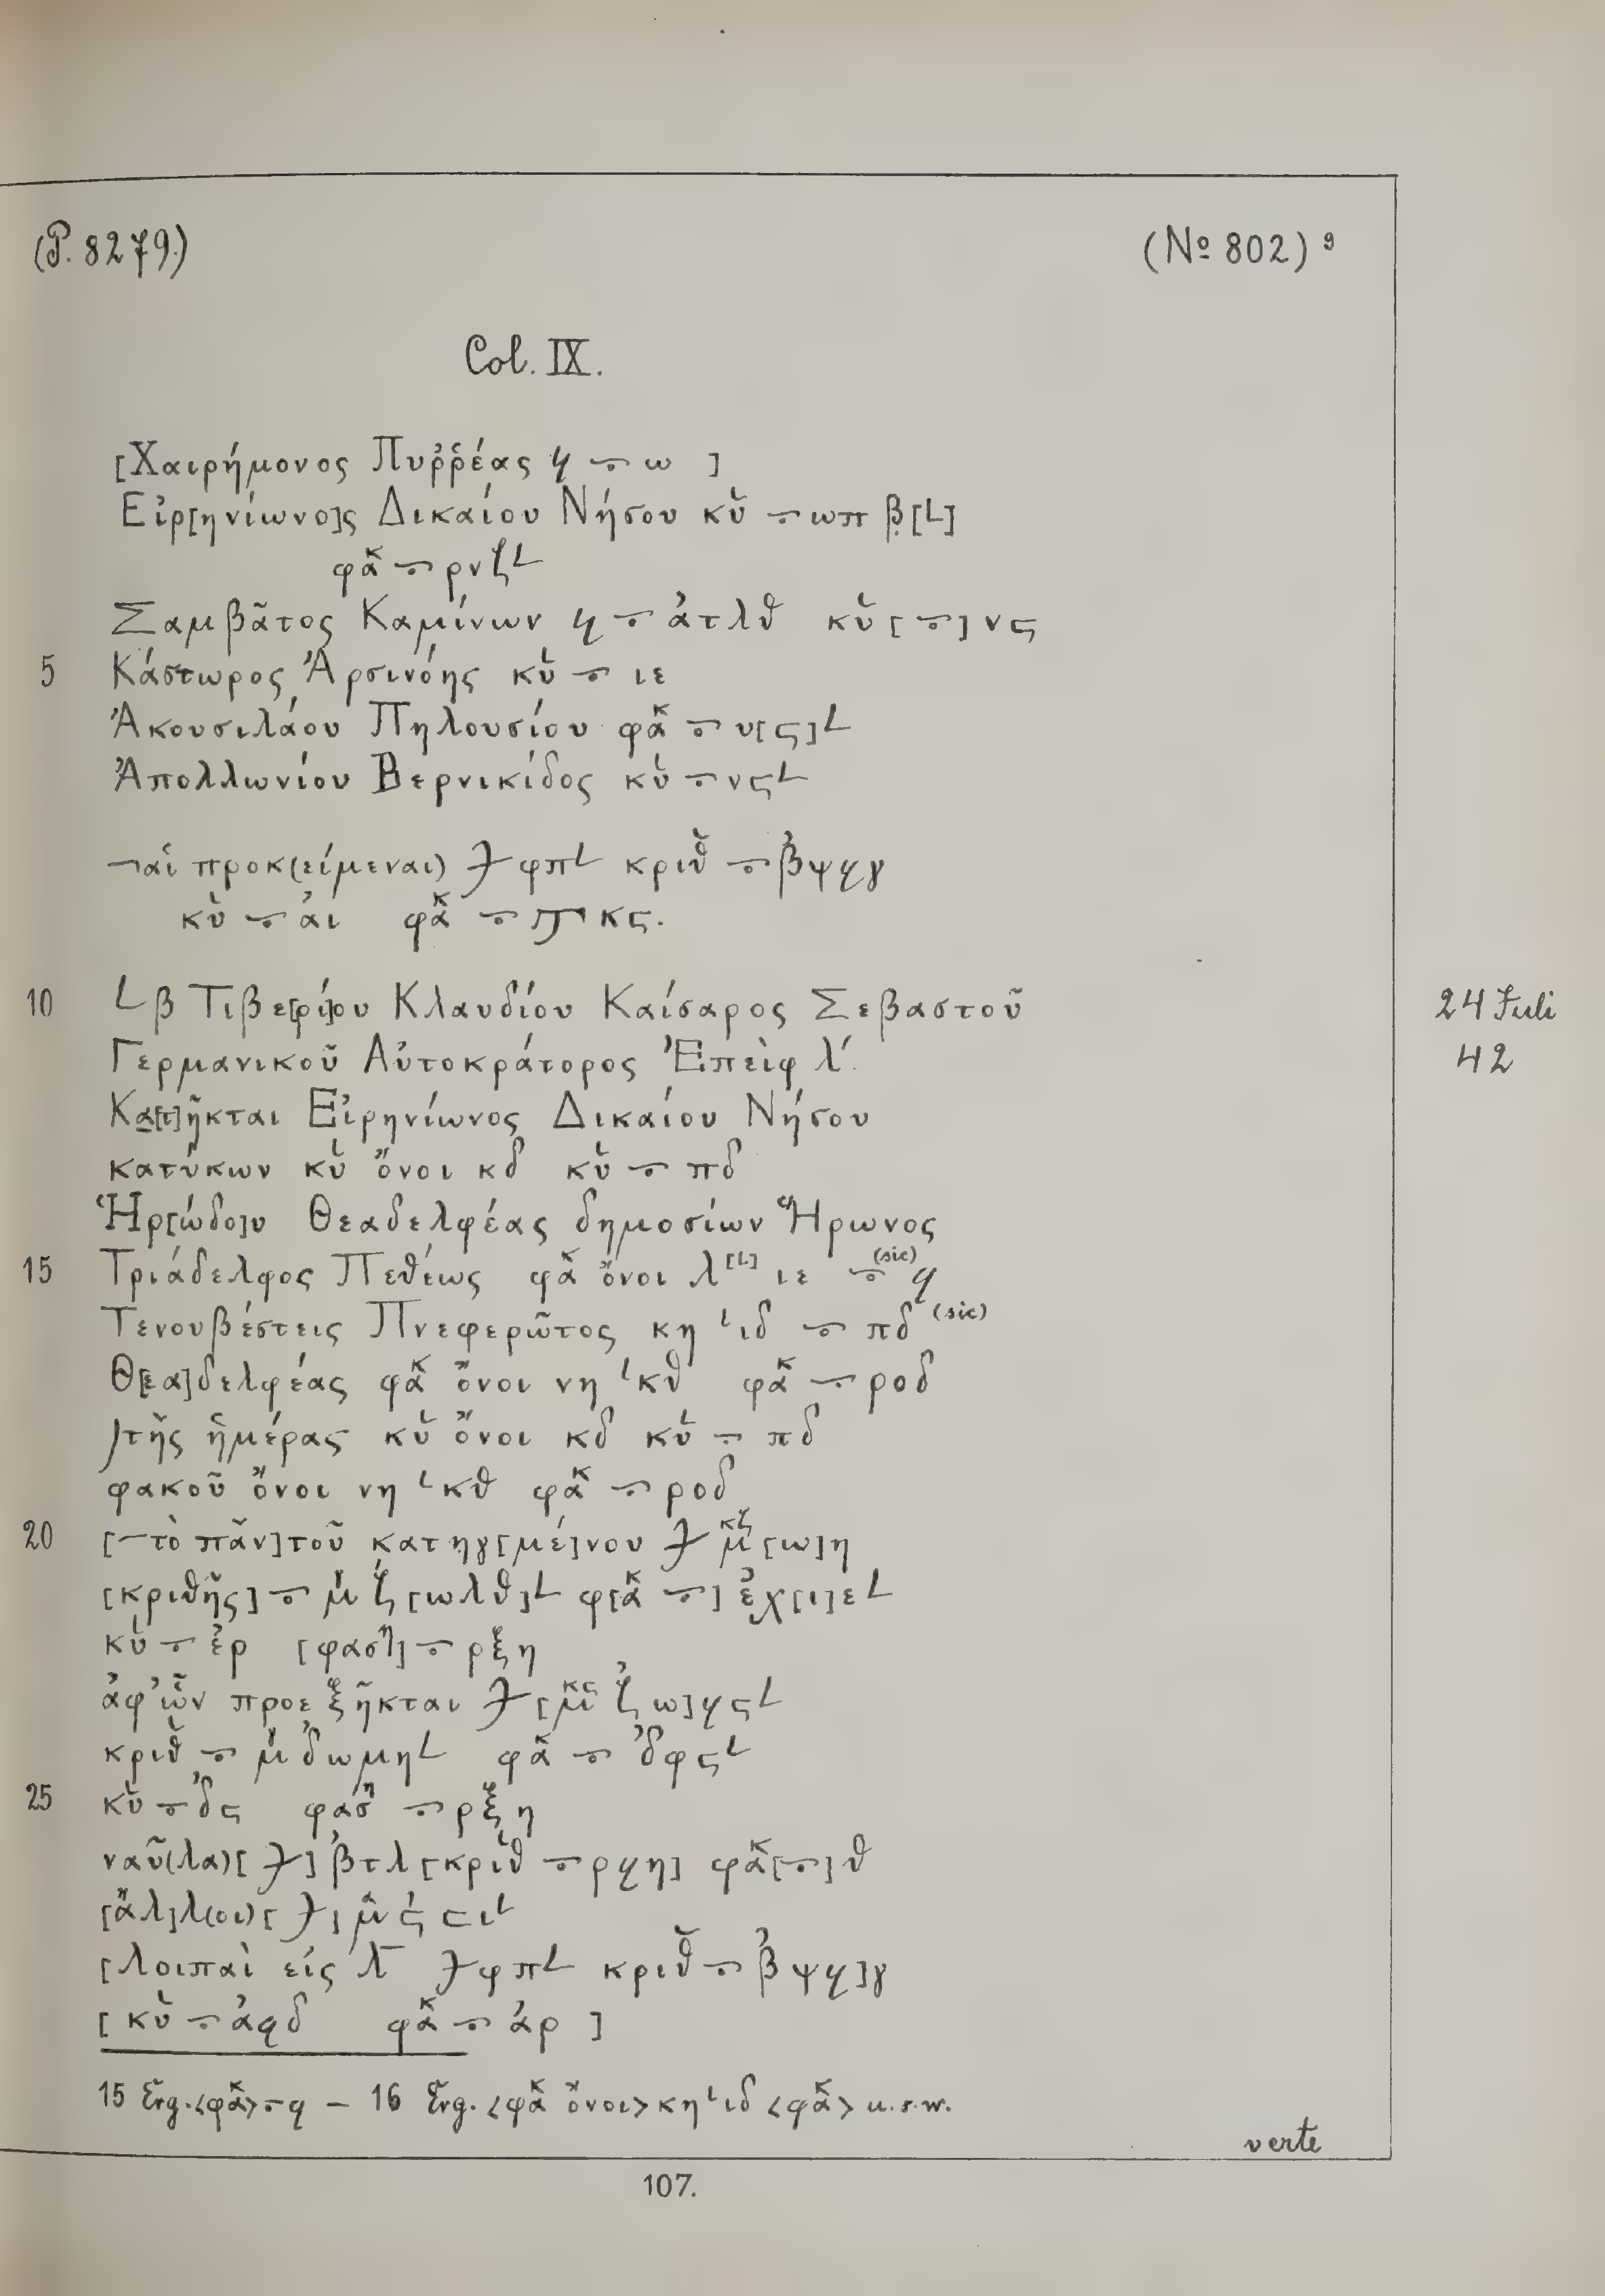 (P. 8279.)
(No 802) 9
Col. IX.
[Χαιρήμονος Πυῤῥέας ϥ ⨪ ω ]
Εἰρ[ηνίωνο]ς Δικαίου Νήσου κύ ⨪ ωπβ̣[L]
φακ ⨪ ρνζL
Σαμβᾶτος Καμίνων ϥ ⨪ ἀτλθ κύ[⨪]νϛ
5 Κάστωρος Ἀρσινόης κύ ⨪ ιε
Ἀκουσιλάου Πηλουσίου φακ ⨪ υ[ϛ]L
Ἀπολλωνίου Βερνικίδος κύ ⨪ νϛL
αἱ προκ(είμεναι) φπL κριθ ⨪ βψϥγ
κύ ⨪ ἀι φακ ⨪ ϡκϛ.
10 Lβ Τιβε[ρί]ου Κλαυδίου Καίσαρος Σεβαστοῦ
24 Juli
42
Γερμανικοῦ Αὐτοκράτορος Ἐπεὶφ λ´.
Κα[τ]ῆκται Εἰρηνίωνος Δικαίου Νήσου
κατύκων κύ ὄνοι κδ κύ ⨪ πδ
Ἡρ[ώδο]υ Θεαδελφέας δημοσίων Ἥρωνος
15 Τριάδελφος Πεθέως φακ ὄνοι λ[L] ιε ⨪ (sic) ϥ
Τενουβέστεις Πνεφερῶτος κη Lιδ ⨪ πδ (sic)
Θ[εα]δελφέας φακ ὄνοι νη Lκθ φακ ⨪ ροδ
/τῆς ἡμέρας κύ ὄνοι κδ κύ ⨪ πδ
φακοῦ ὄνοι νη Lκθ φακ ⨪ ροδ
20 [—τὸ πᾶν]τοῦ κατηγ[μέ]νου μκζ [ω]η
[κριθῆς] ⨪ μ ζ[ωλθ]L φ[ακ ⨪] ἐχ[ι]εL
κύ ⨪ ἐρ [φασή] ⨪ ρξη
ἀφ’ ὧν προεξῆκται [μκϛ ζω]ϥϛL
κριθ ⨪ μ δωμηL φακ ⨪ δφϛL
25 κύ ⨪ δϛ φασή ⨪ ρξη
ναῦ(λα)[ ] βτλ[κριθ ⨪ ρϥη] φακ[⨪]θ
[ἄλ]λ(οι)[ ] μα ϛ ϲιL
[λοιπαὶ εἰς λ φπL κριθ ⨪ βψϥ]γ
[κύ ⨪ ἀϥδ φακ ⨪ ἀρ ]
15 Erg. <φακ> ⨪ ϥ — 16 Erg. <φακ ὄνοι> κη Lιδ <φακ> u.s.w.
verte
107.